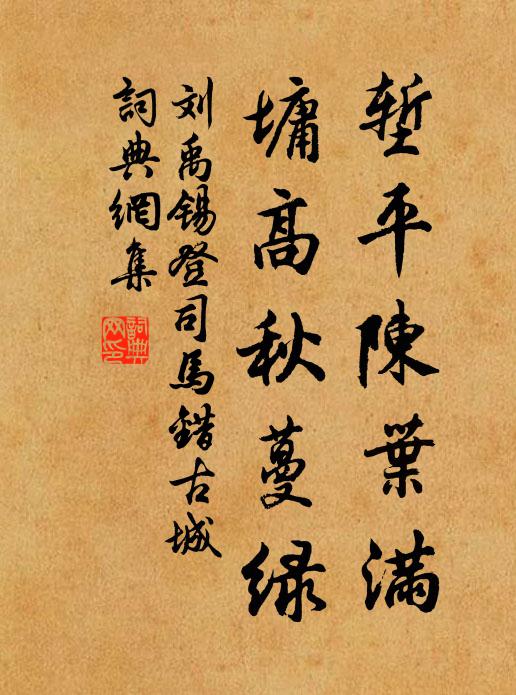 塹平陳葉滿
墉高秋蔓綠
刘禹錫登司馬錯古城
詞典網集
詞典網印